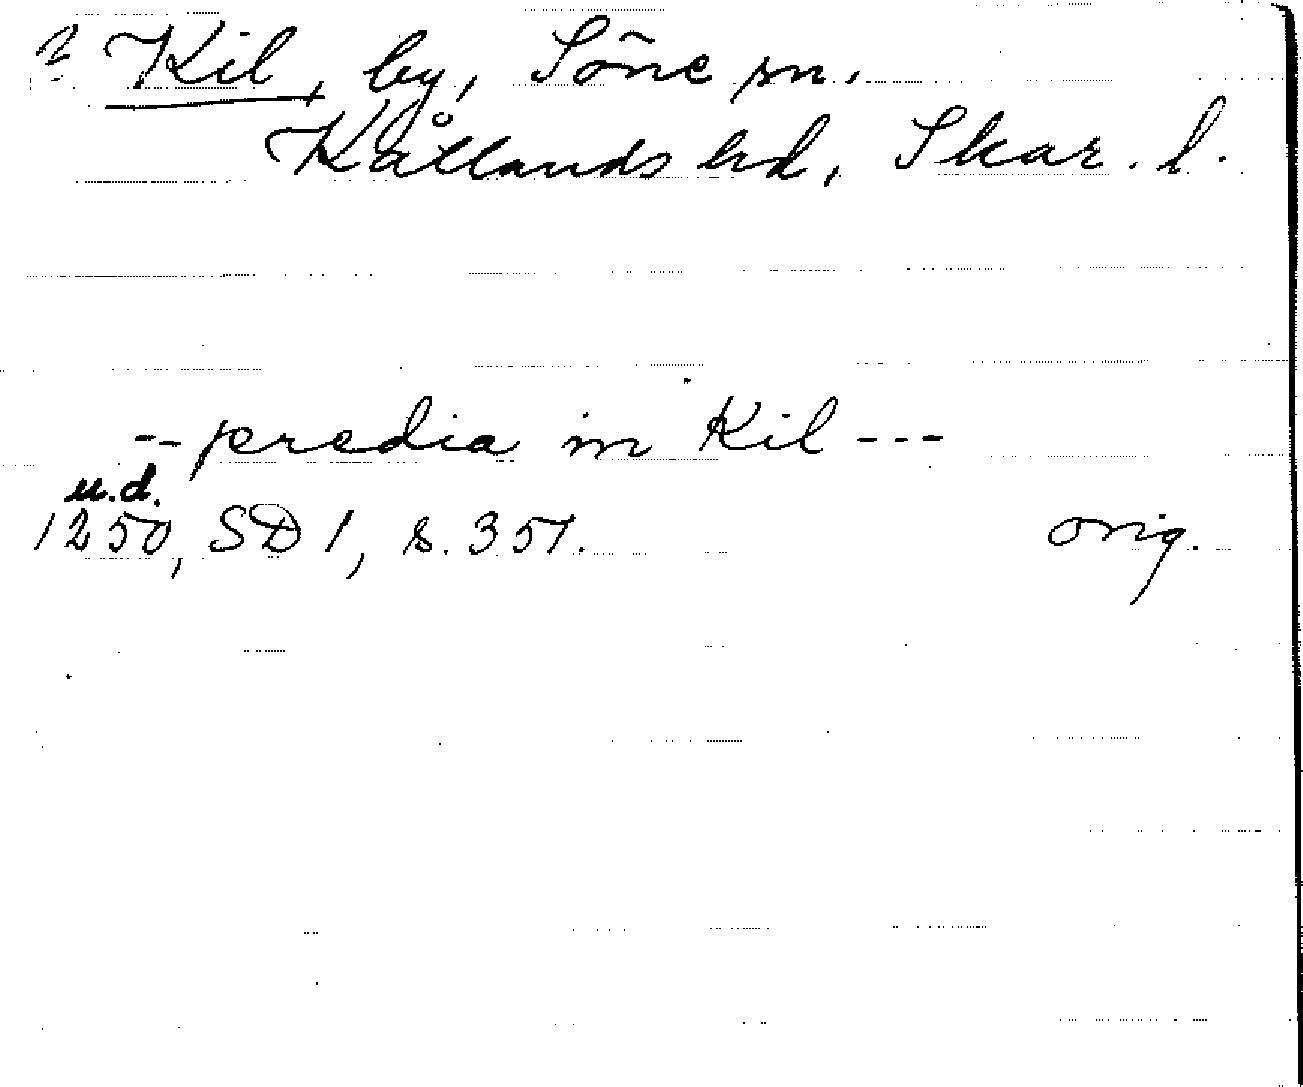 ? Kil, by, Söne sn.
Kållands hd, Skar. l.
-- predia in Kil ---
u.d.
1250, SD 1, s. 351. orig.